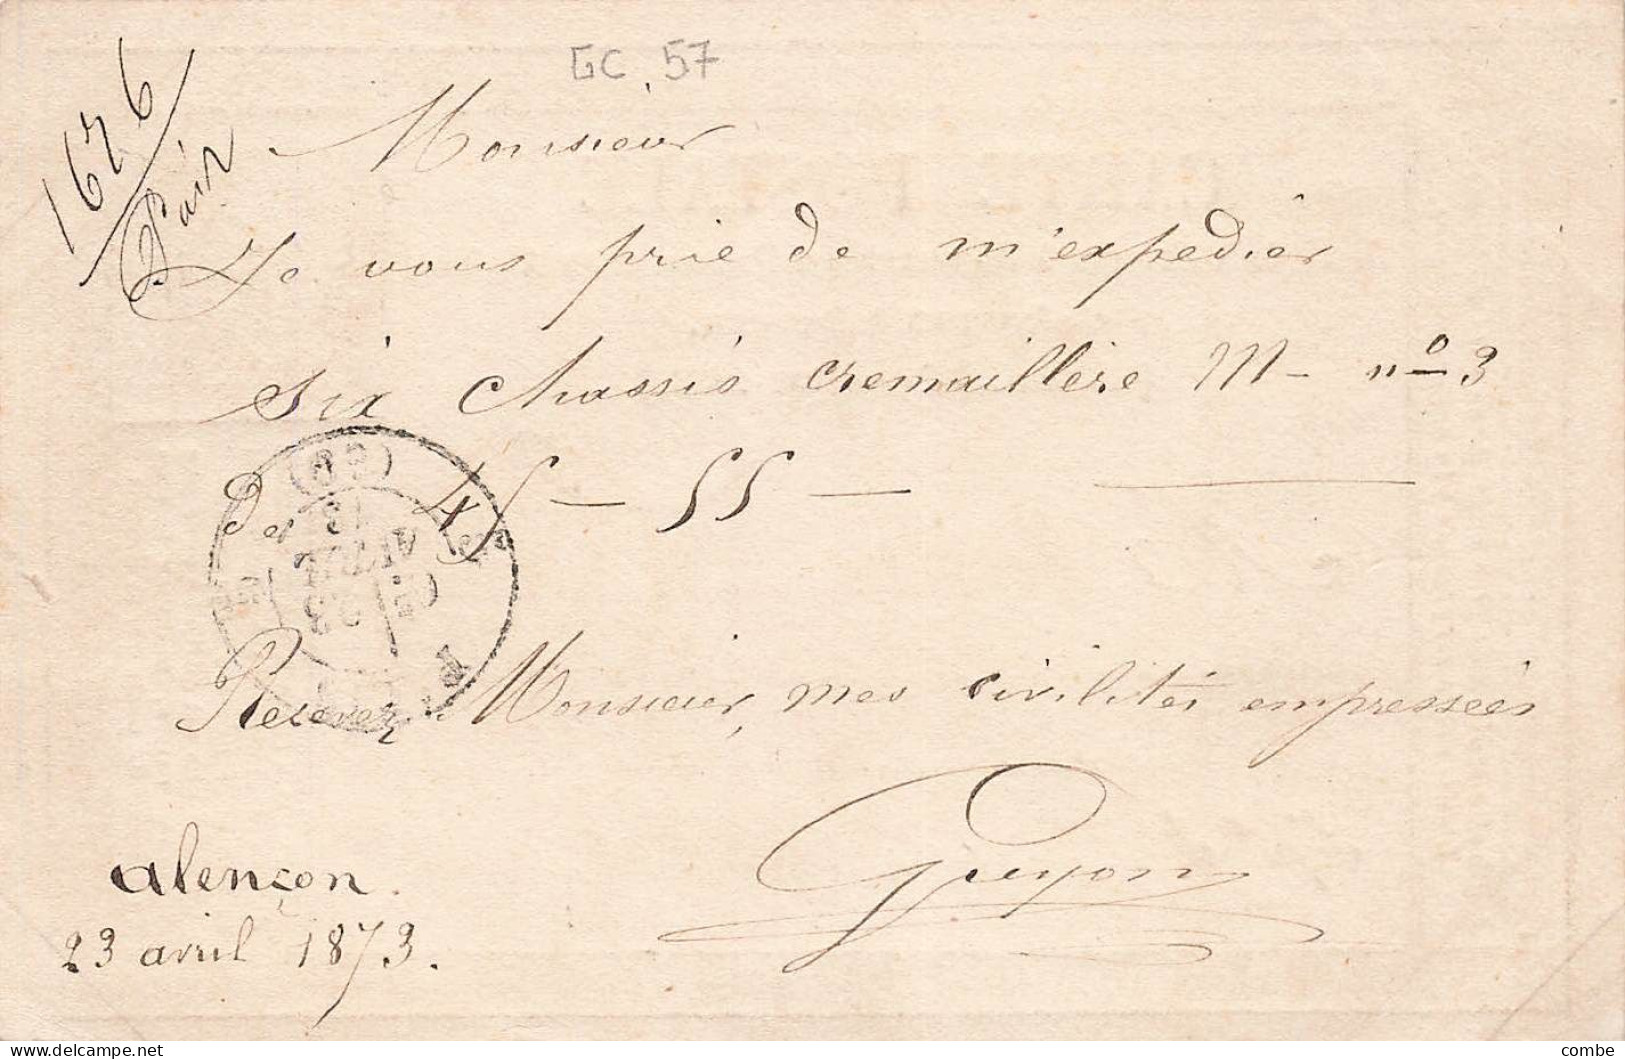 GC 57
1626
Monsieur
Je vous prie de m'expedier
six chassis cremaillère M - nº 3
de 45 - 55 -
Recevez Monsieur, mes civilités empressées
Guyon
alençon.
23 avril 1873.
combe